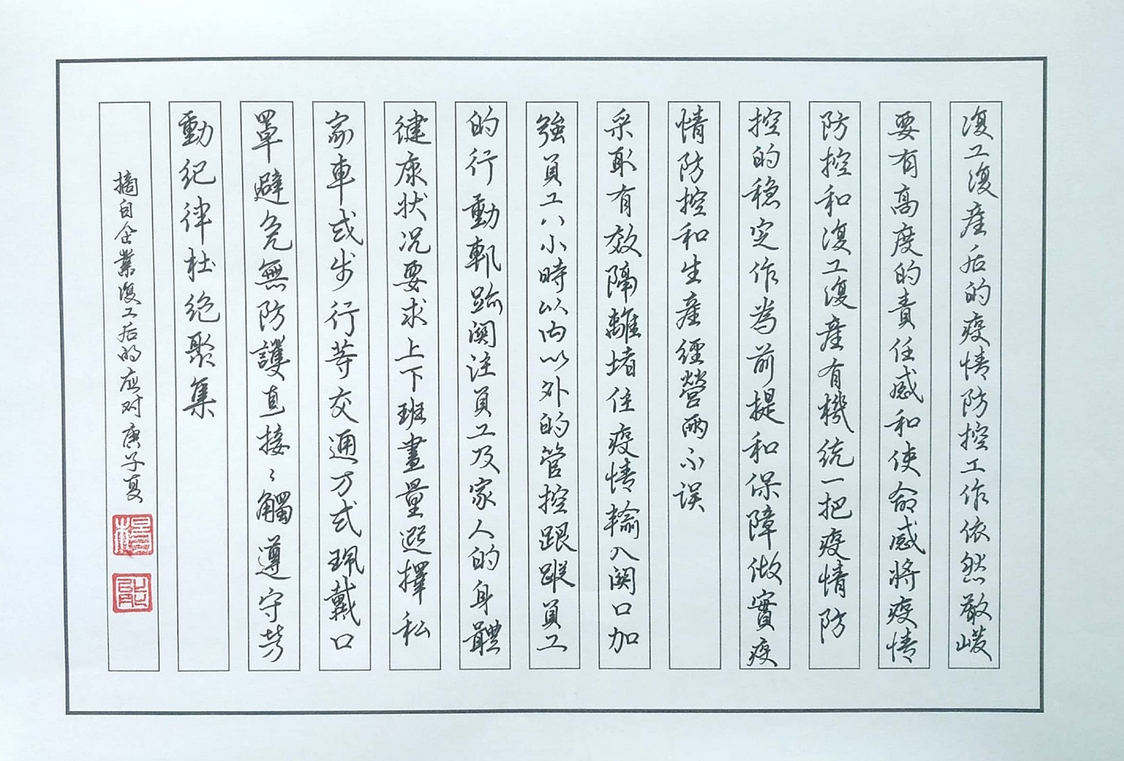 復工復產后的疫情防控工作依然嚴峻
要有高度的責任感和使命感將疫情
防控和復工復產有機統一把疫情防
控的穩定作為前提和保障做實疫
情防控和生產經營兩不誤
采取有效隔離堵住疫情輸入関口加
強員工八小時以內以外的管控跟蹤員工
的行動軌跡関注員工及家人的身體
健康狀況要求上下班盡量選擇私
家車或步行等交通方式珮戴口
罩避免無防護直接〻觸遵守勞
動紀律杜絕聚集
摘自企業復工后的应对庚子夏
楊